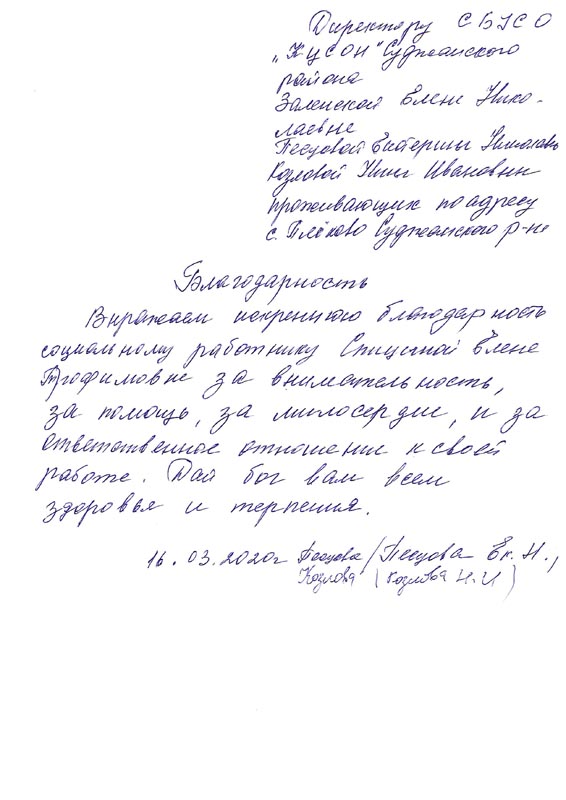 Директору СБУСО
"КЦСОН" Суджанского
района
Заленской Елене Нико-
лаевне
Песцовой Екатерины Николаевны
Козловой Нины Ивановны
проживающих по адресу
с. Плёхово Суджанского р-на
Благодарность
Выражаем искреннюю благодарность
социальному работнику Спициной Елене
Трофимовне за внимательность,
за помощь, за милосердие, и за
ответственное отношение к своей
работе. Дай бог вам всем
здоровья и терпения.
16.03.2020г Песцова / Песцова Ек. Н.,
Козлова (Козлова Н.И)